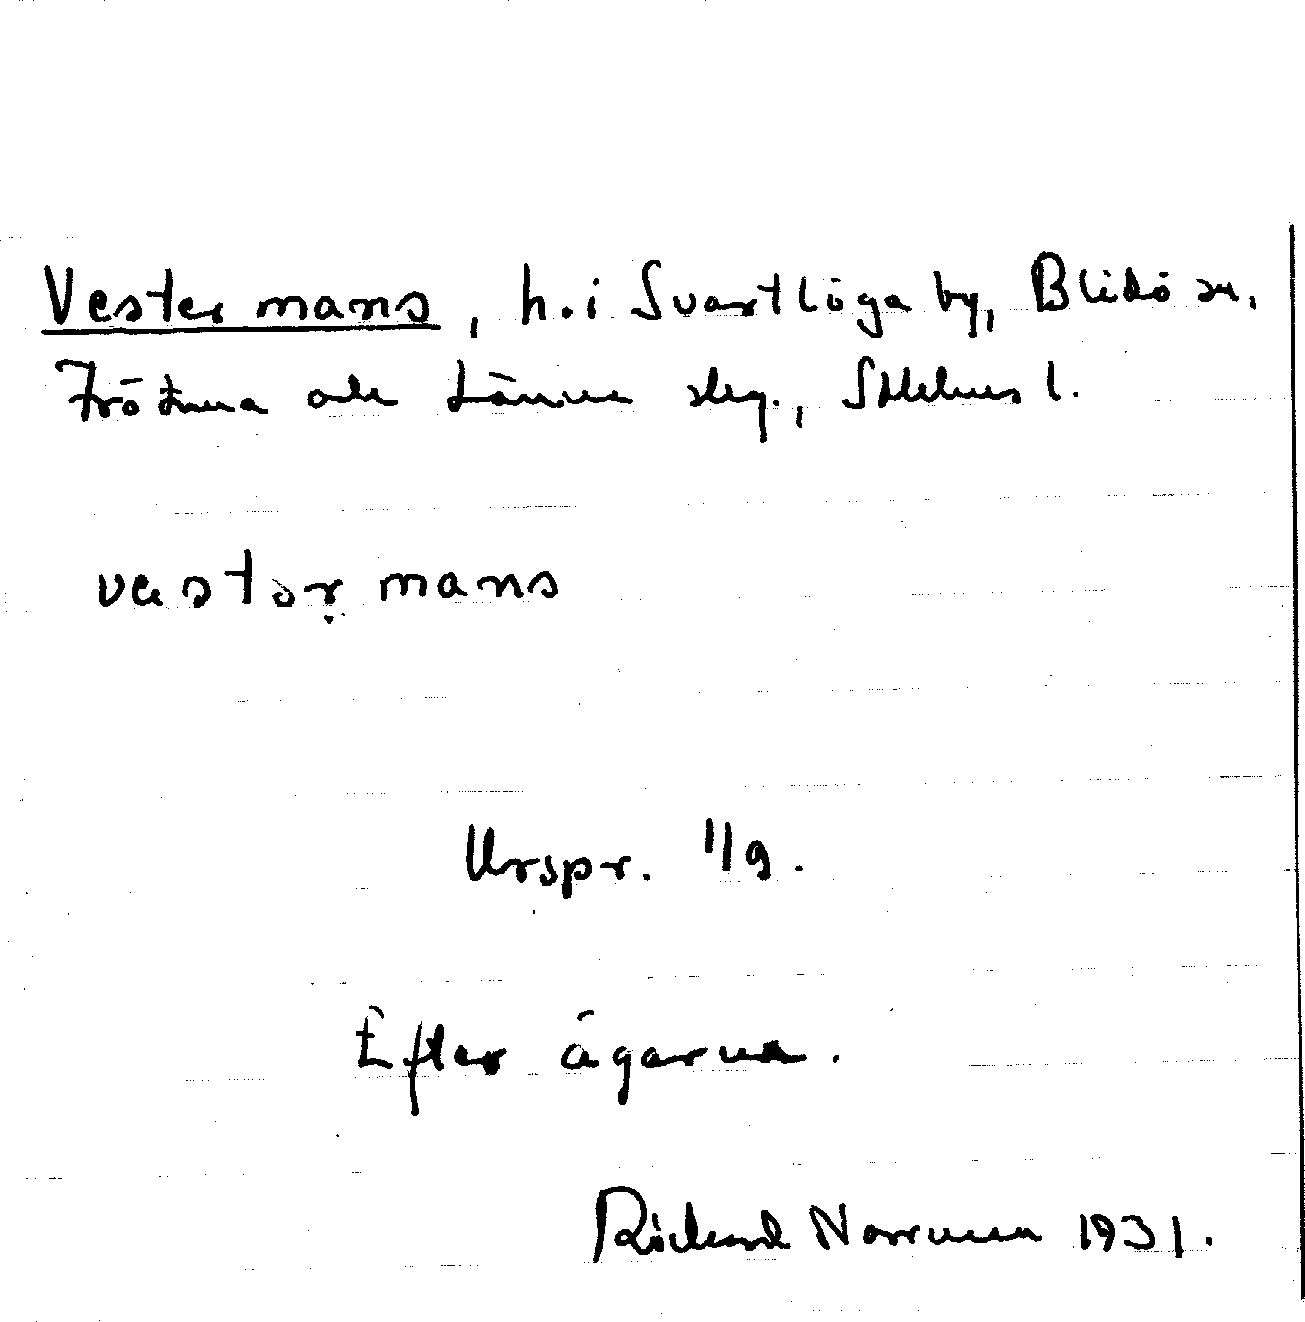 Vestermans, h. i Svartlöga by, Blidö sn,
Frötuna och Länna skg., Sthlms l.
vestərmans
Urspr. 1/9.
Efter ägarna.
Rickard Norrman 1931.